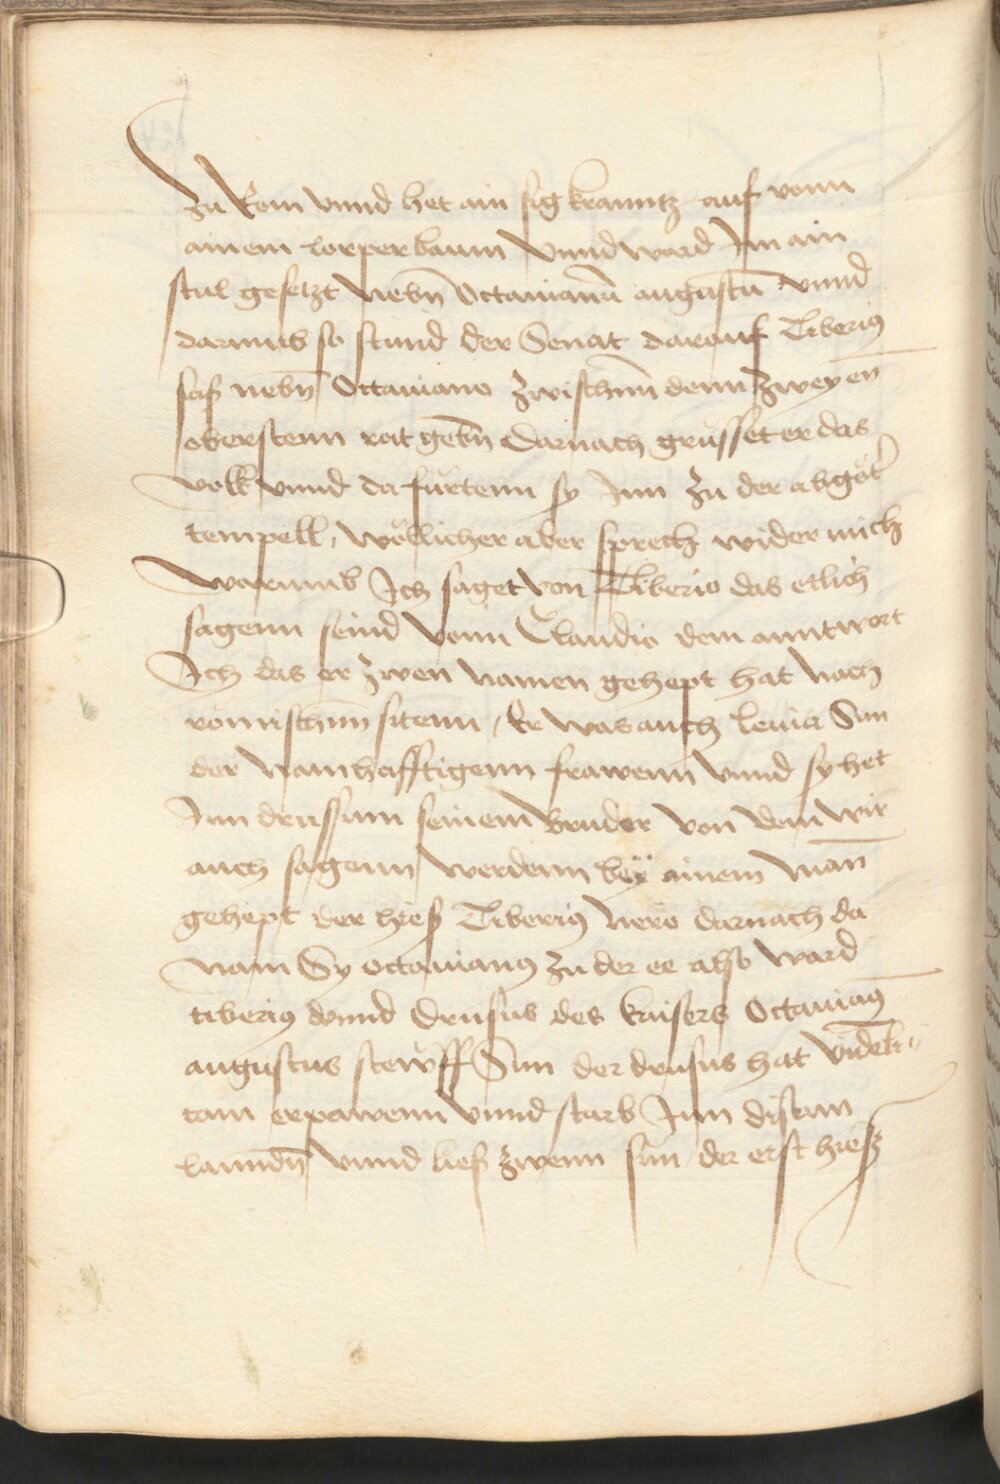 Zu Rom vnnd het ain sig kranntz auf vonn
ainem lorper baum vnnd ward Im ain
stul gesetzt nebn̄ Octauianū augustū vnnd
darumb so stund der Senat darauf Tiberiꝰ
sas nebn̄ Octauiano zwischnn̄ denn zweyen
oberstenn rat gebn̄ Darnach grüsset er das
volk vnnd da fürtenn sy Inn zu der abgöt
tempell, wöllicher aber sprech wider mich
Warumb Ich saget von Tiberio das etlich
sagenn seind vonn Claudio dem anntwort
Ich das er zwen namen gehept hat nach
römischnn̄ sitenn / Er was auch leuia Sun
der namhafftigenn frawenn vnnd sy het
Inn drussum seinem bruder von dem wir
auch sagenn werdenn bey ainem man̄
gehept der hies Tiberiꝰ nero darnach da
nam Sy octauianꝰ zu der ee also ward
tiberiꝰ vnnd Drusus des kaisers Octauianꝰ
augustus stewff Sun der drusus hat videli
tam erpawenn vnnd starb Inn disenn
lanndn̄ vnnd lies zwenn sun der erst hiesz